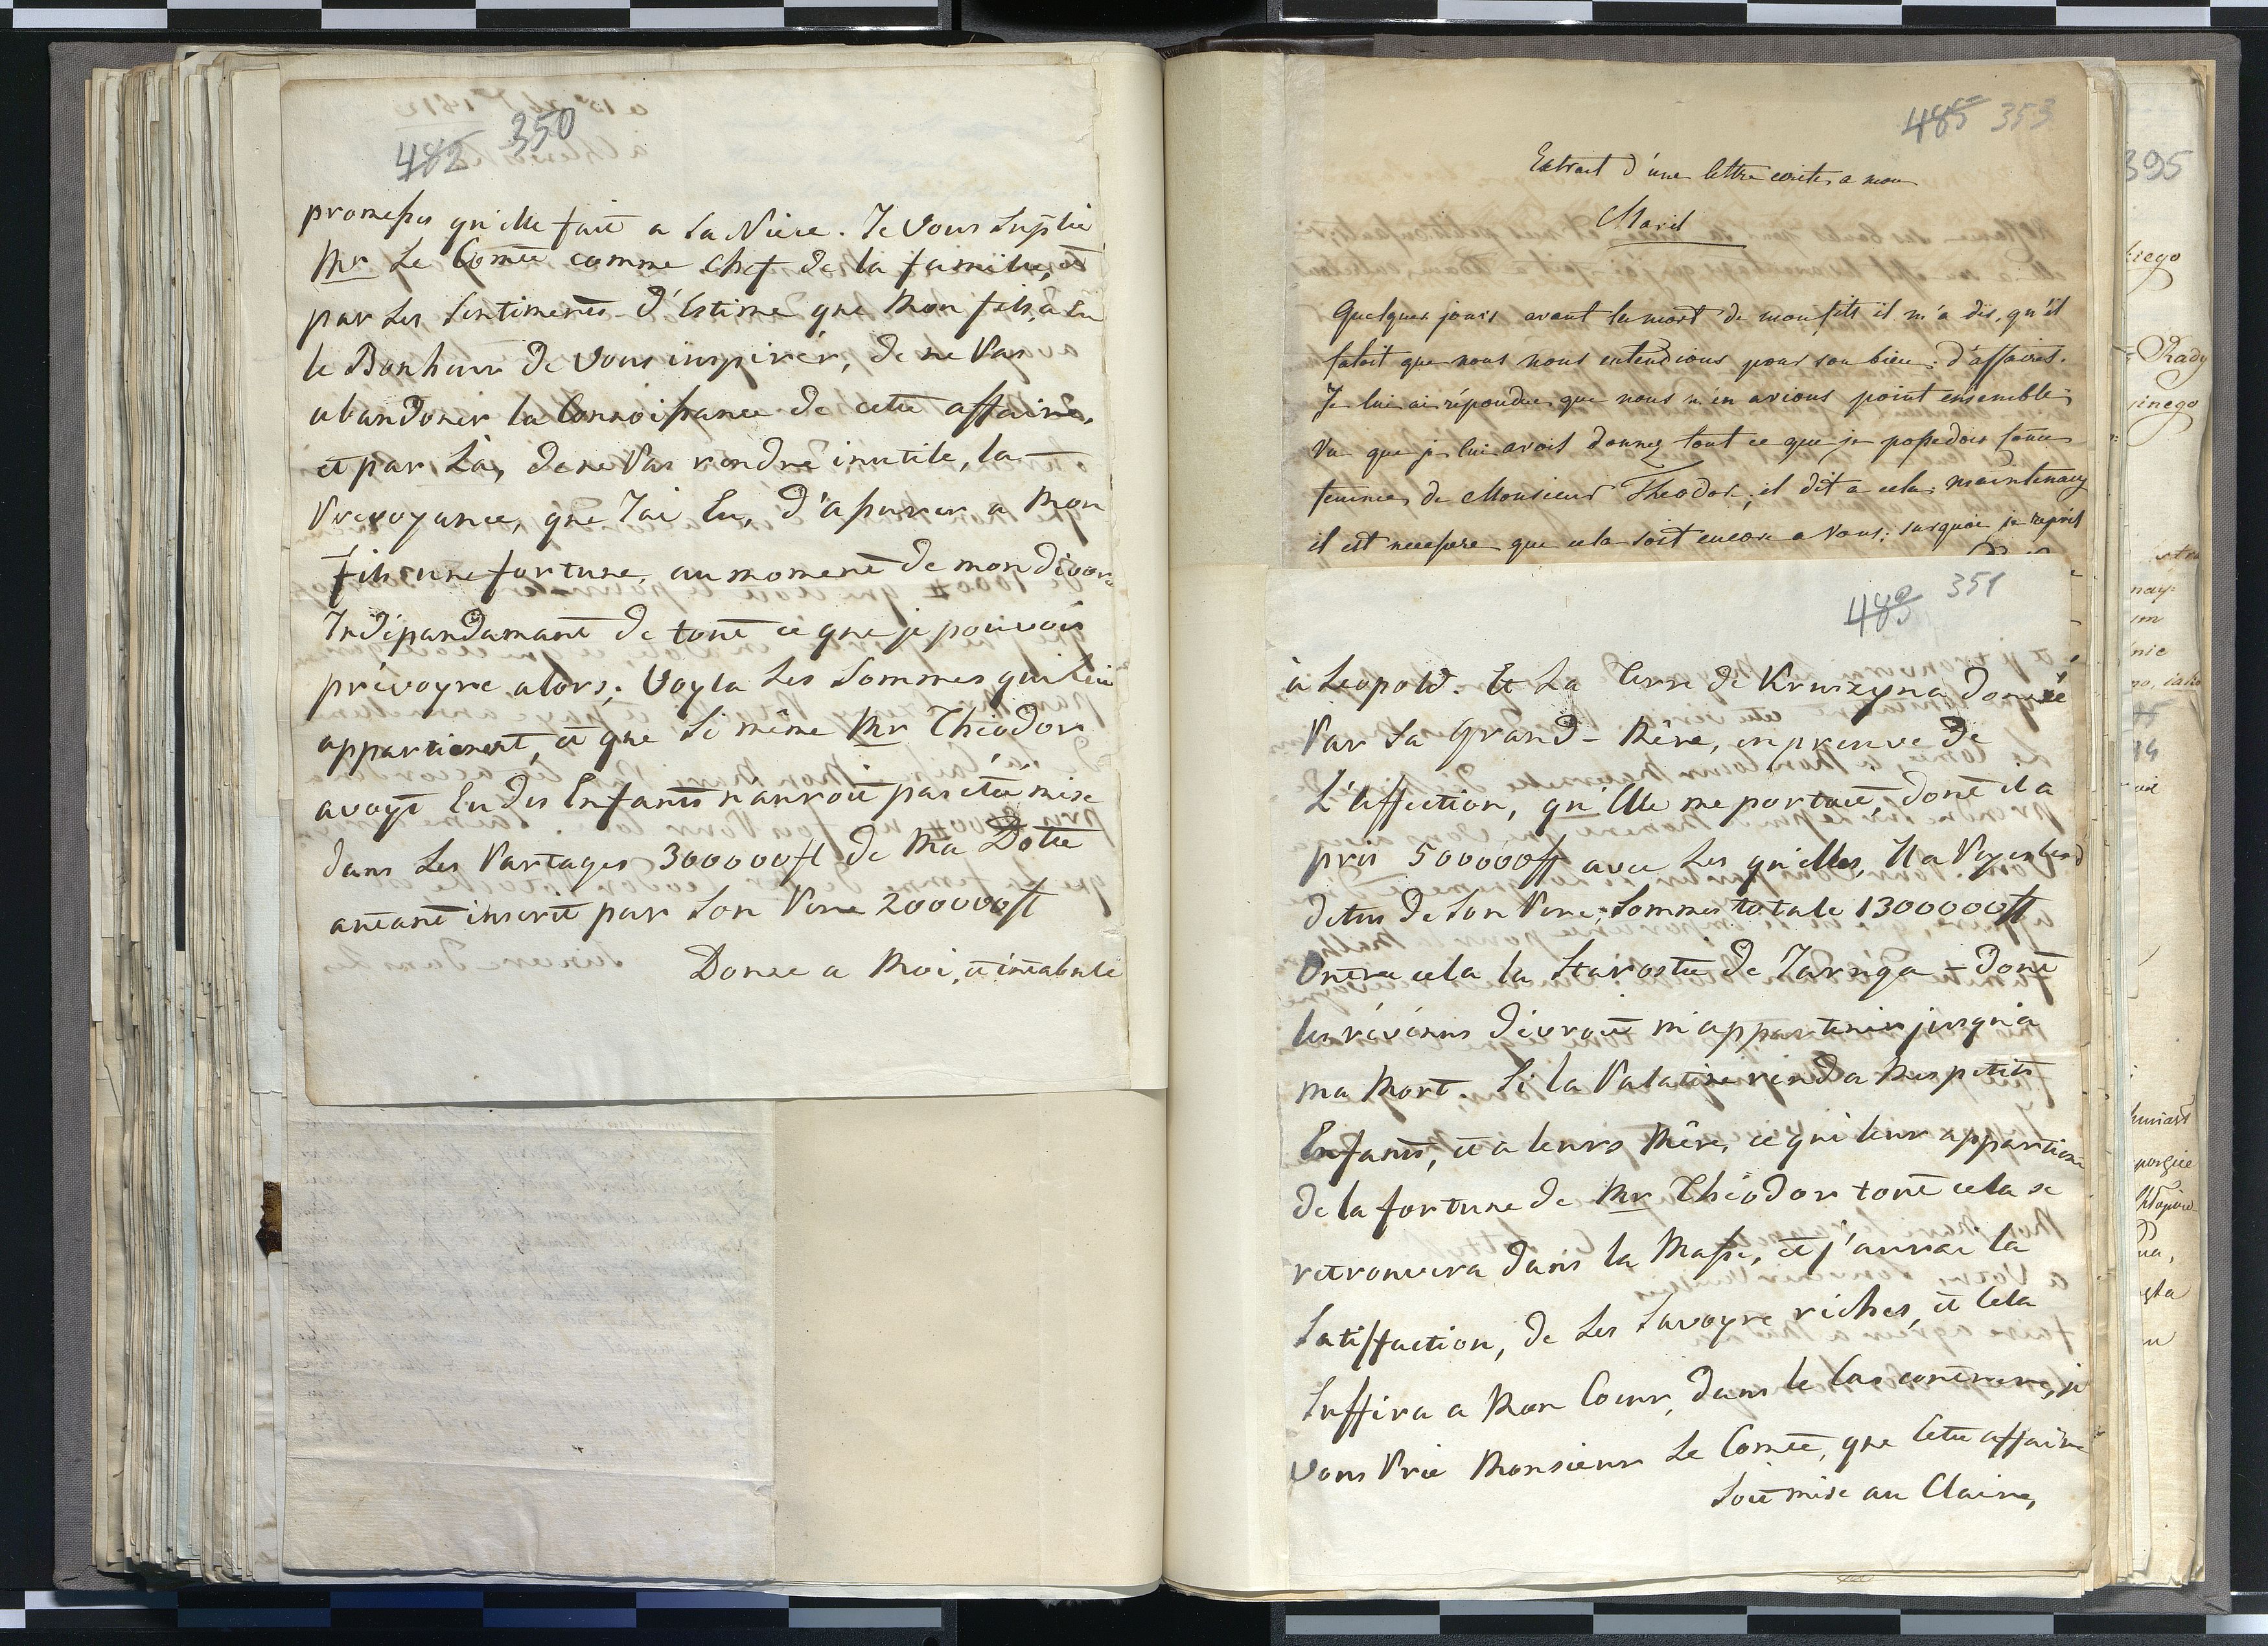 482 350
promesses qu'elle fait a Sa Niece. Je Vous Suplie
Mr Le Comte comme chef de la famille, et
par Les Sentiments d'Estime que Mon fils, a Eu
le Bonheur de Vous inspirér, de ne Pas
abandoner la Connoissance de cette affaire,
et par Là, de ne Pas rendre inutile, la
Prevoyance, que J'ai Eu, d'assurer a Mon
fils une fortune, au moment de mon divor
Indépandamant de tout ce que je pouvois
prévoyre alors; Voyla Les Sommes qui Lui
appartienent, et que Si même Mr Théodor
avoyt Eu des Enfants n'auroit pas étée mise
dans Les Partages 300000fl de Ma Dotte
autant inscrit par Son Pere 200000fl
Donee a Moi, et intabulé
485 353
Extrait d'une lettre ecrite a mon
Maril
Quelques jours avant la mort de mon fils il m'a dis, qu'il
falait que nous nous entendions pour son bien d'affaires.
Je lui ai répondue que nous n'en avions point ensemble,
Vu que je lui avois donnez tout ce que je possedois
de Monsieur Theodor, il dit a cela maintenant
il est necessere que cela soit encore a Vous; surquoi je repris
483 351
à Leopold. Et La Terre de Kruszyna donéé
Par Sa Grand-Mére, en preuve de
L'affection, qu'Elle me portoit, dont il a
pris 500000fl avec Les qu'elles, Il a Payé
dettes de Son Pere; Sommes totale 1300000fl
Outre cela la Starostie de Jaruga - dont
les révénus dévroit m'appartenir jusqu'a
ma Mort. Si la Palatine rend a Mes petits
Enfants, et a leurs Mére, ce qui leur appartient
de la fortune de Mr Théodor tout cela se
retrouvera dans la Masse, et j'aurrai la
Satisffaction, de Les Savoyre riches, et Cela
Suffira a Mon Coeur, dans le Cas contraire, je
Vous Prie Monsieur Le Comte, que Cette affaire
Soit mise au Claire,
395
Rady